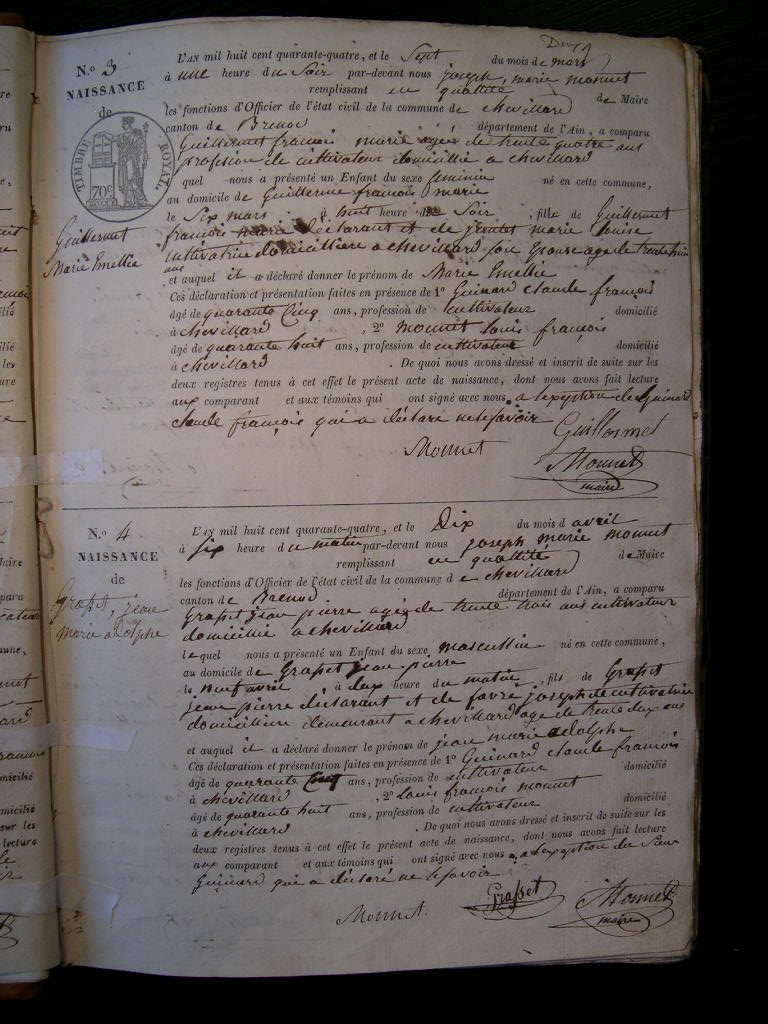 N.º 3
NAISSANCE
de
TIMBRE ROYAL
70 C
Guillermet
Marie Emellie
L'AN mil huit cent quarante-quatre, et le Sept du mois de mars
à une heure du Soir par-devant nous joseph, marie monnet
remplissant en quallité de Maire
les fonctions d'Officier de l'état civil de la commune de chevillard
canton de Brenod département de l'Ain, a comparu
Guillermet francois marie agée de trente quatre ans
profession de cultivateur domicillié a chevillard
quel nous a présenté un Enfant du sexe féminin né en cette commune,
au domicile de Guillerme francois marie
le Six mars à huit heure du Soir, fille de Guillermet
francois marie déclarant et de marie louise
cultivatrice domicilliere a chevillard son Epouse age de trente
ans
et auquel il a déclaré donner le prénom de Marie Emellie
Ces déclaration et présentation faites en présence de 1º Guinard claude francois
âgé de quarante Cinq ans, profession de cultivateur domicilié
à chevillard , 2º monnet louis françois
âgé de quarante huit ans, profession de cultivateur domicilié
à chevillard . De quoi nous avons dressé et inscrit de suite sur les
deux registres tenus à cet effet le présent acte de naissance, dont nous avons fait lecture
aux comparant et aux témoins qui ont signé avec nous a lexeption de Guinard
claude françois qui a déclaré ne le savoir
Guillermet
Monnet
Monnet
maire
N.º 4
NAISSANCE
de
Grasset, jean
marie adolphe
L'AN mil huit cent quarante-quatre, et le Dix du mois d avril
à Six heure du matin par-devant nous joseph marie monnet
remplissant en quallité de Maire
les fonctions d'Officier de l'état civil de la commune de chevillard
canton de Brenod département de l'Ain, a comparu
Grasset jean pierre agée de trente trois ans cultivateur
domicillié a chevillard
lequel nous a présenté un Enfant du sexe mascullin né en cette commune,
au domicile de Grasset jean pierre
le neuf avril à deux heure du matin, fils de Grasset
jean pierre déclarant et de favre josephte cultivatrice
domicilliere demeurant a chevillard age de trente deux ans
et auquel il a déclaré donner le prénom de jean marie adolphe
Ces déclaration et présentation faites en présence de 1º Guinard claude francois
âgé de quarante Cinq ans, profession de cultivateur domicilié
à chevillard , 2º Louis françois monnet
âgé de quarante huit ans, profession de cultivateur domicilié
à chevillard . De quoi nous avons dressé et inscrit de suite sur les
deux registres tenus à cet effet le présent acte de naissance, dont nous avons fait lecture
aux comparant et aux témoins qui ont signé avec nous a lexeption du Sieur
Guinard qui a déclaré ne le savoir
Monnet.
Grasset
Monnet
maire